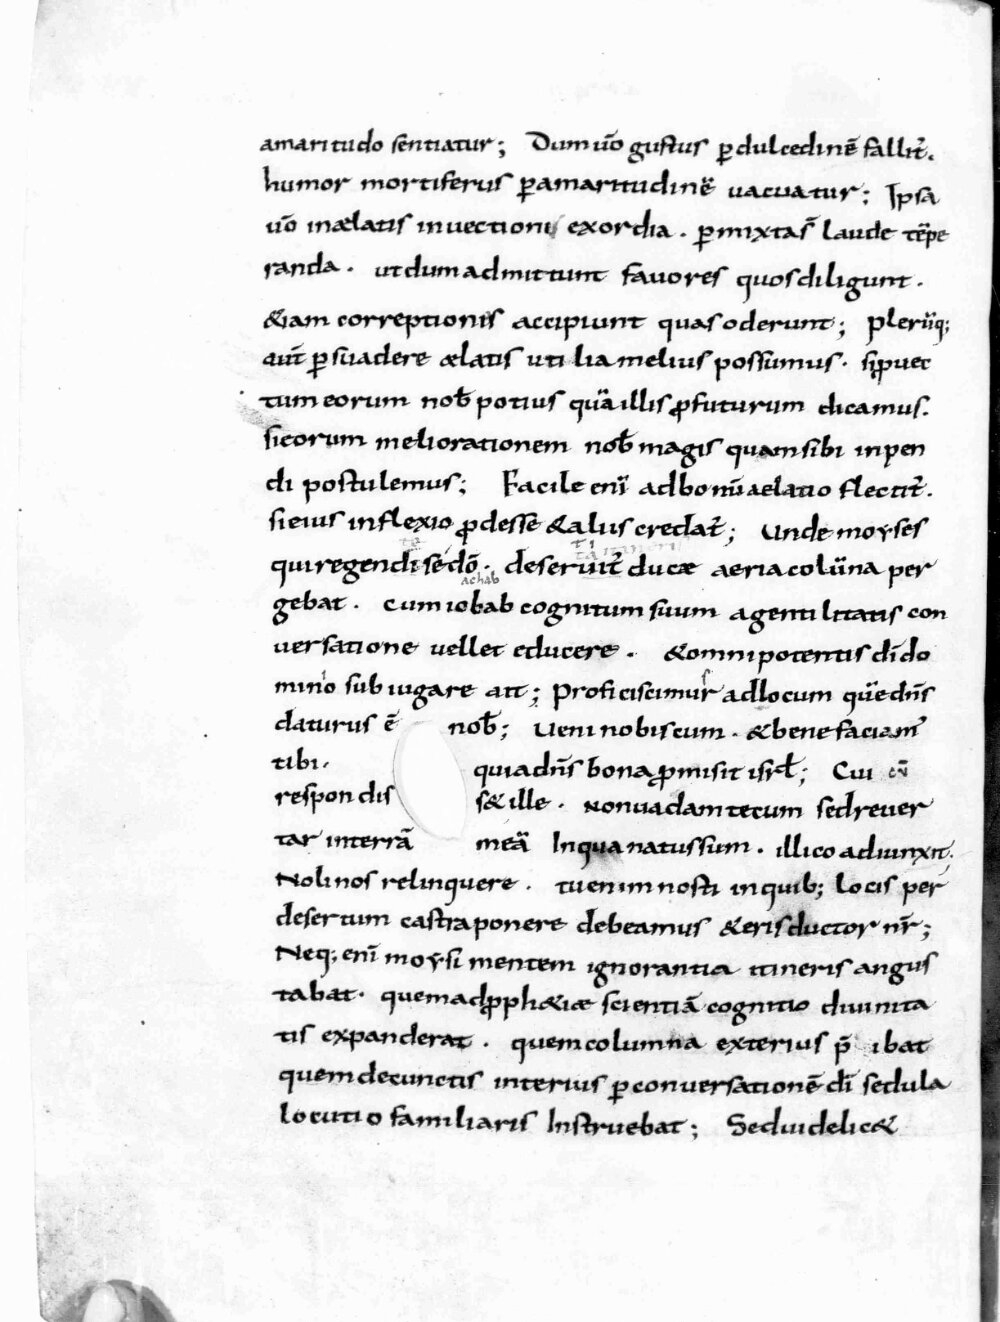 amaritudo sentiatur; Dum ũo gustus ꝑ dulcedinẽ fallit̃.
humor mortiferus ꝑ amaritudinẽ uacuatur; Ipsa
ũo in ælatis inuectionis exordia. ꝑmixtas̃ laude tẽpe
randa. ut dum admittunt fauores quos diligunt.
&iam correptionis accipiunt quas oderunt; Plerũq;
aut̃ ꝑsuadere ælatis utilia melius possumus. si ꝓuec
tum eorum nob̃ potius quã illis ꝓfuturum dicamus.
si eorum meliorationem nob̃ magis quam sibi inpen
di postulemus; Facile enĩ ad bonũ aelatio flectit̃.
si eius inflexio ꝓdesse & aliis credat̃; Unde moyses
qui regenti se dõ. deseruit̃ ducæ aeria colũna per
achab
gebat. Cum iobab cognitum suum a gentilitatis con
uersatione uellet educere. & omnipotentis dĩ do
minio subiugare ait; Proficiscimur ad locum quẽ dñs
daturus ẽ nob̃; Ueni nobiscum. & bene faciam̃
tibi. quia dñs bona ꝓmisit isrl̃; Cui cũ
respondis s& ille. Non uadam tecum sed reuer
tar in terrã meã In qua natus sum. illico adiunxit;
Noli nos relinquere. tu enim nosti in quib; locis per
desertum castra ponere debeamus & eris ductor nr̃;
Neq; enĩ moysi mentem ignorantia itineris angus
tabat. quem ad ꝓph&iæ scientiã cognitio diuinita
tis expanderat. quem columna exterius p̃ ibat
quem de cunctis interius ꝑ conuersationẽ dĩ sedula
locutio familiaris Instruebat; Sed uidelic&